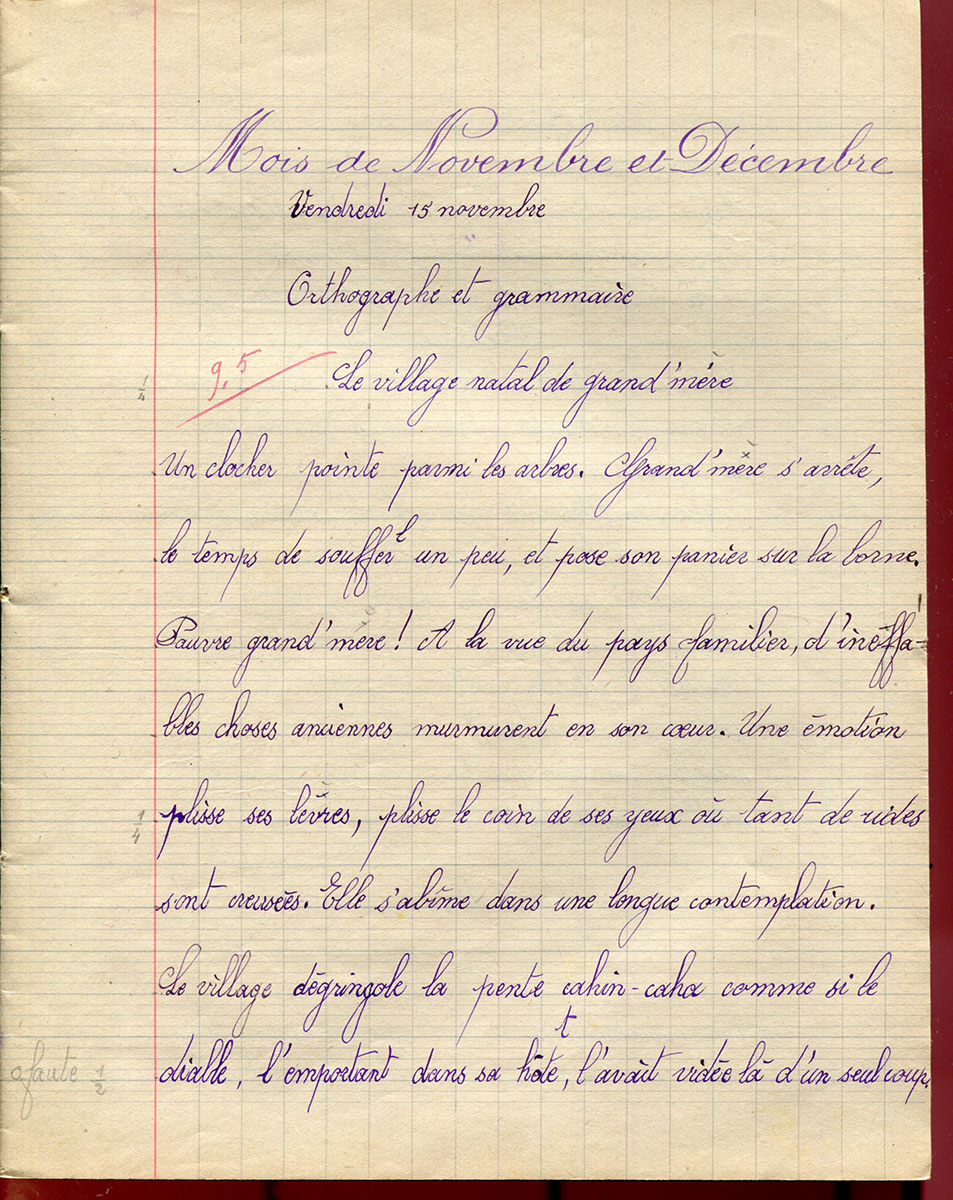 Mois de Novembre et Décembre
Vendredi 15 novembre
Orthographe et grammaire
9,5
1/4 Le village natal de grand'mère
Un clocher pointe parmi les arbres. Grand'mère s'arrête,
le temps de souffler un peu, et pose son panier sur la borne.
Pauvre grand'mère ! A la vue du pays familier, d'ineffa-
bles choses anciennes murmurent en son cœur. Une émotion
1/4 plisse ses lèvres, plisse le coin de ses yeux où tant de rides
sont creusées. Elle s'abîme dans une longue contemplation.
Le village dégringole la pente cahin-caha comme si le
t
0 faute 1/2 diable, l'emportant dans sa hôte, l'avait vidée là d'un seul coup.